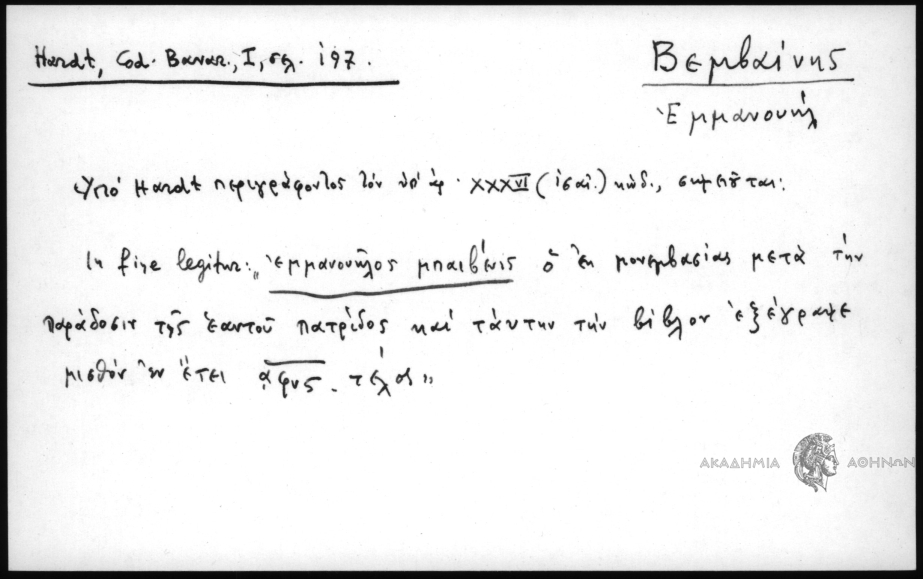 Hardt, Cod. Bavar., I, σελ. 197.
Βεμβαίνης
Ἐμμανουήλ
Ὑπό Hardt περιγράφοντος τόν ὑπ' ἀρ. XXXVI (ἰσαι.) κώδ., σημειοῦται:
In fine legitur: „ἐμμανουῆλος μπαιβένις ὁ ἐκ μονεμβασίας μετὰ τήν
παράδοσιν τῆς ἑαυτοῦ πατρίδος καί τάυτην τήν βίβλον ἐξέγραψε
μισθόν ἐν ἔτει αφνς. τέλος"
ΑΚΑΔΗΜΙΑ ΑΘΗΝΩΝ